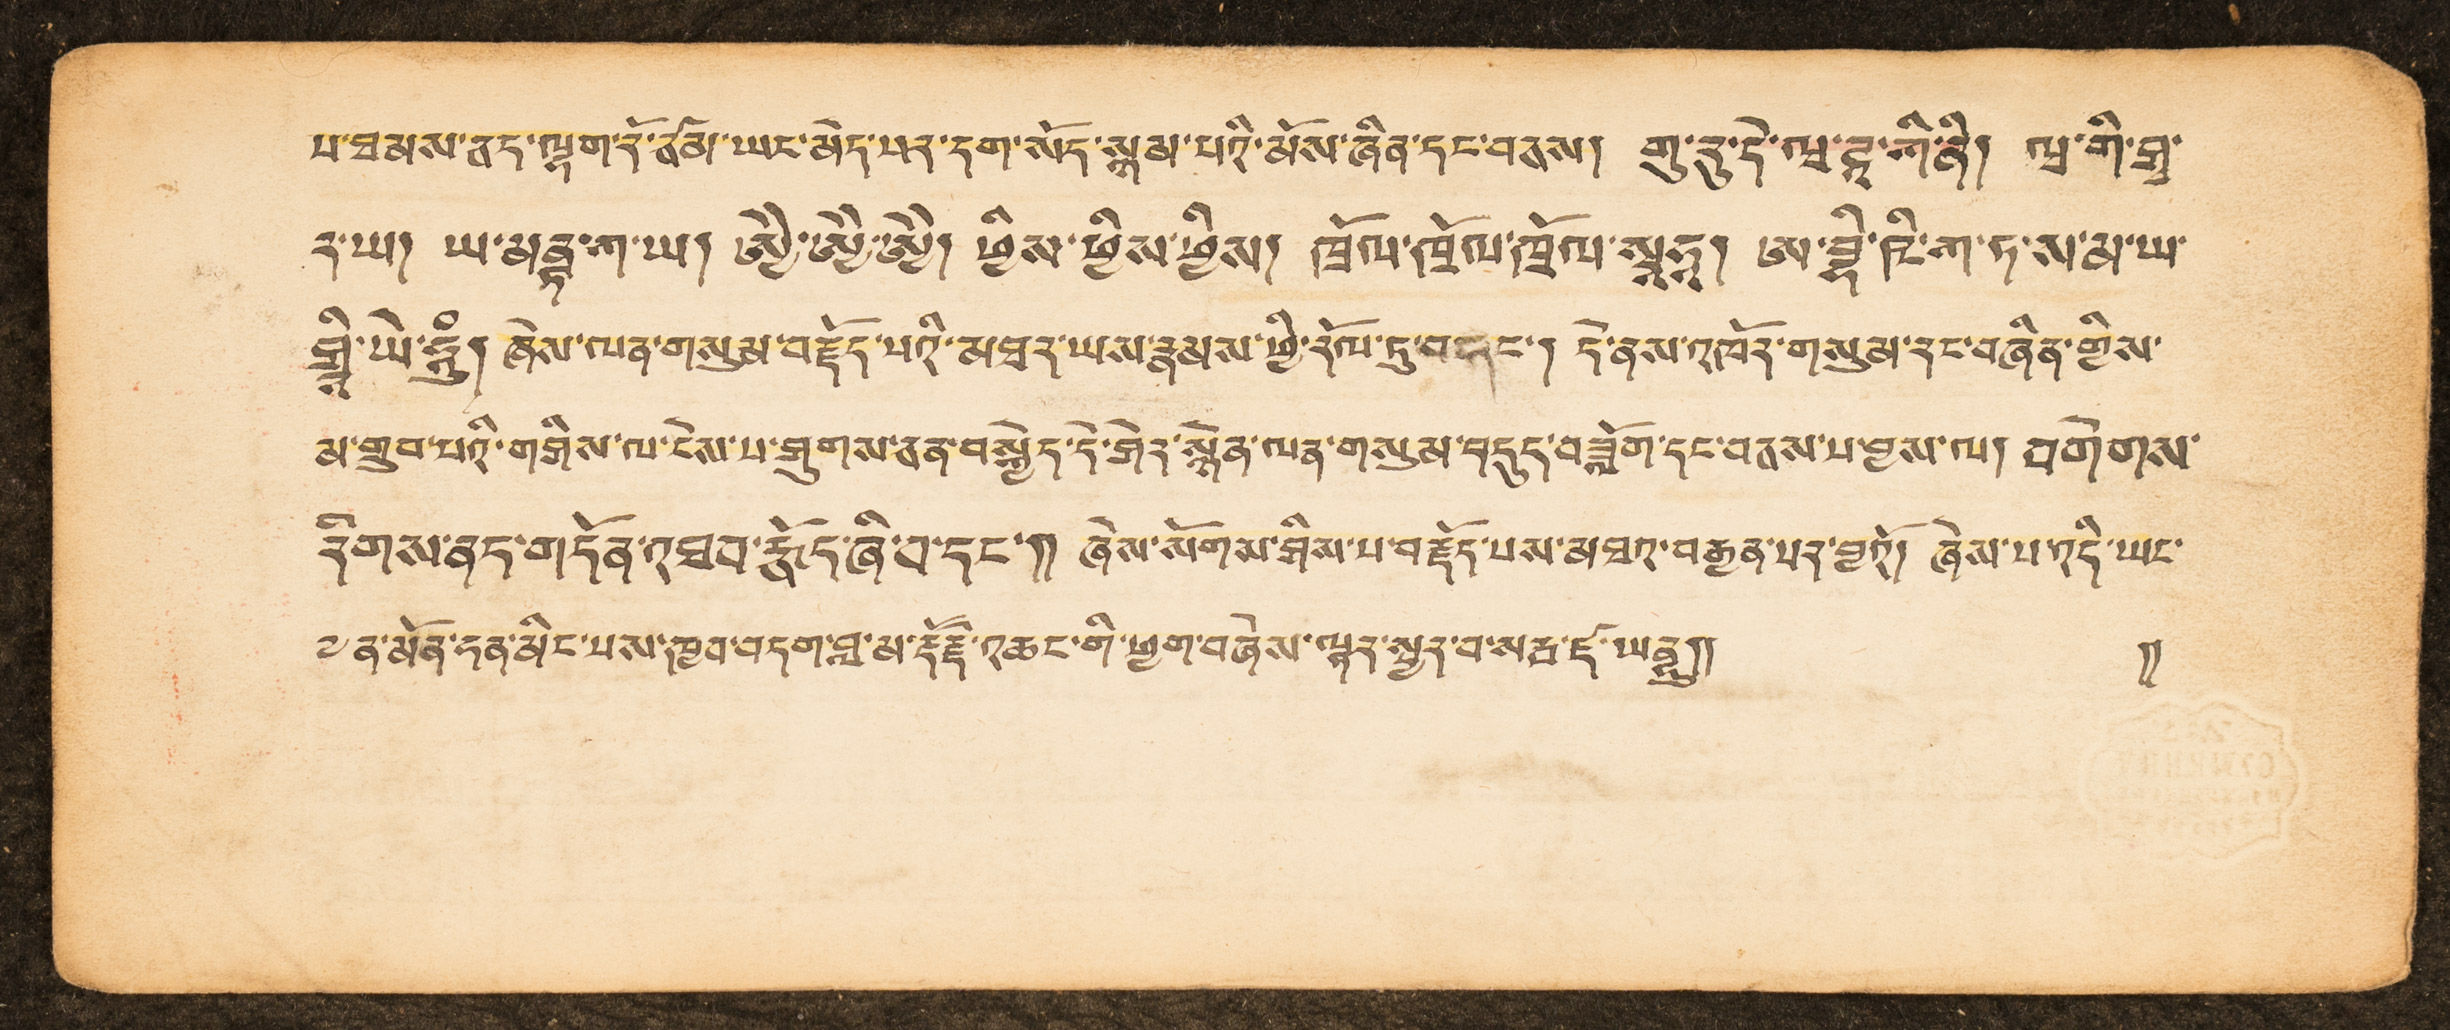 པ་བྲམས་ནད་ལྷག་རོ་ཙམ་ཡང་མེད་པར་དག་སོང་སྙམ་པའི་མོས་ཞིན་དང་བཅས། གུ་རུ་དེ་ལྦ་ཌཱ་ཀི་ནི། ལྦ་གི་གྲུ་
ར་ཡ། ཡ་མནྟ་ཀ་ཡ། ཨྱེ་ཨྱེ་ཨྱེ། ཕྱིས་ཕྱིས་ཕྱིས། ཁྲོལ་ཁྲོལ་ཁྲོལ་སྭཱཧཱ། ཨ་བྷི་ཁི་ཀ་ཏ་ས་མ་ཡ་
ཤྲཱི་ཡེ་ཧཱུྃ། ཞེས་ལན་གསུམ་བརྗོད་པའི་མཐར་ཡས་རྣམས་ཕྱི་རོལ་ཏུ་བ དང་། དེ་ནས་འཁོར་གསུམ་རང་བཞིན་གྱིས་
མ་གྲུབ་པའི་གཤིས་ལ་ངེས་པ་ཤུགས་ཅན་བསྐྱེད་དེ་ཤེར་སྙིན་ལན་གསུམ་བདུད་བཟློག་དང་བཅས་པ་བྱས་ལ། བགེགས་
རིགས་ནད་གདོན་འཐབ་རྩོད་ཞི་བ་དང་༎ ཞེས་སོགས་ཤིས་པ་བརྗོད་པས་མཐའ་བརྒྱན་པར་བྱའོ། ཞེས་པ་འདི་ཡང་
ན་མོན་དན་མིང་པས་ཁྱབ་བདག་བླ་མ་རྡོ་རྗེ་འཆང་གི་ཕྱག་བཞེས་ལྟར་སྦྱར་བ་སརྦ་ཛ་ཡནྟུ༎ ༎